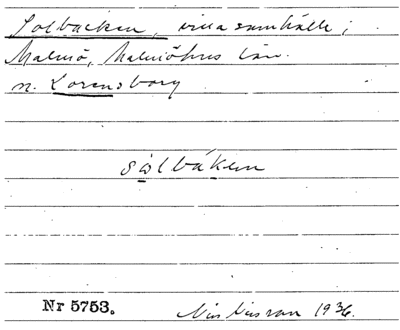 Solbacken, villasamhälle;
Malmö, Malmöhus län.
n. Lorensborg
sòlbáken
Nr 5753.
1936.